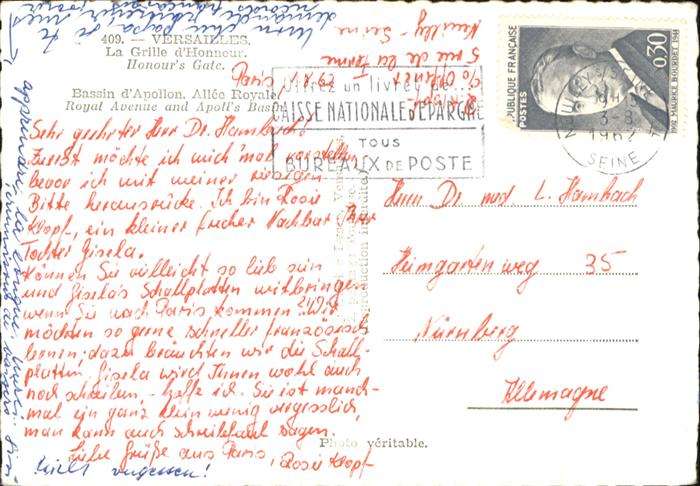 409. — VERSAILLES.
La Grille d'Honneur.
Honour's Gate.
Bassin d'Apollon. Allée Royale
Royal Avenue and Apoll's Basin
Paris
5 rue de la Ferme
Neuilly - Seine
CAISSE NATIONALE D'ÉPARGNE
TOUS
BUREAUX DE POSTE
RÉPUBLIQUE FRANÇAISE
POSTES
0,30
MAURICE BOURDET
3-8
1962
SEINE
Sehr geehrter Herr Dr. Hambach!
Zuerst möchte ich mich 'mal vorstellen
bevor ich mit meiner
Bitte herausrücke. Ich bin Rosie
Klopf, ein kleiner frecher Nachbar Ihrer
Tochter Gisela.
Können Sie vielleicht so lieb sein
und Gisela's Schallplatten mitbringen
wenn Sie nach Paris kommen? Wir
möchten so gerne schneller französisch
lernen; dazu bräuchten wir die Schall-
platten. Gisela wird Ihnen wohl auch
noch schreiben, - hoffe ich. Sie ist manch-
mal ein ganz klein wenig vergesslich,
man kann auch schreibfaul sagen.
Liebe Grüße aus Paris,
Rosie Klopf
nicht vergessen!
Herrn Dr. med. L. Hambach
Heimgartenweg 35
Nürnberg
Allemagne
Photo véritable.